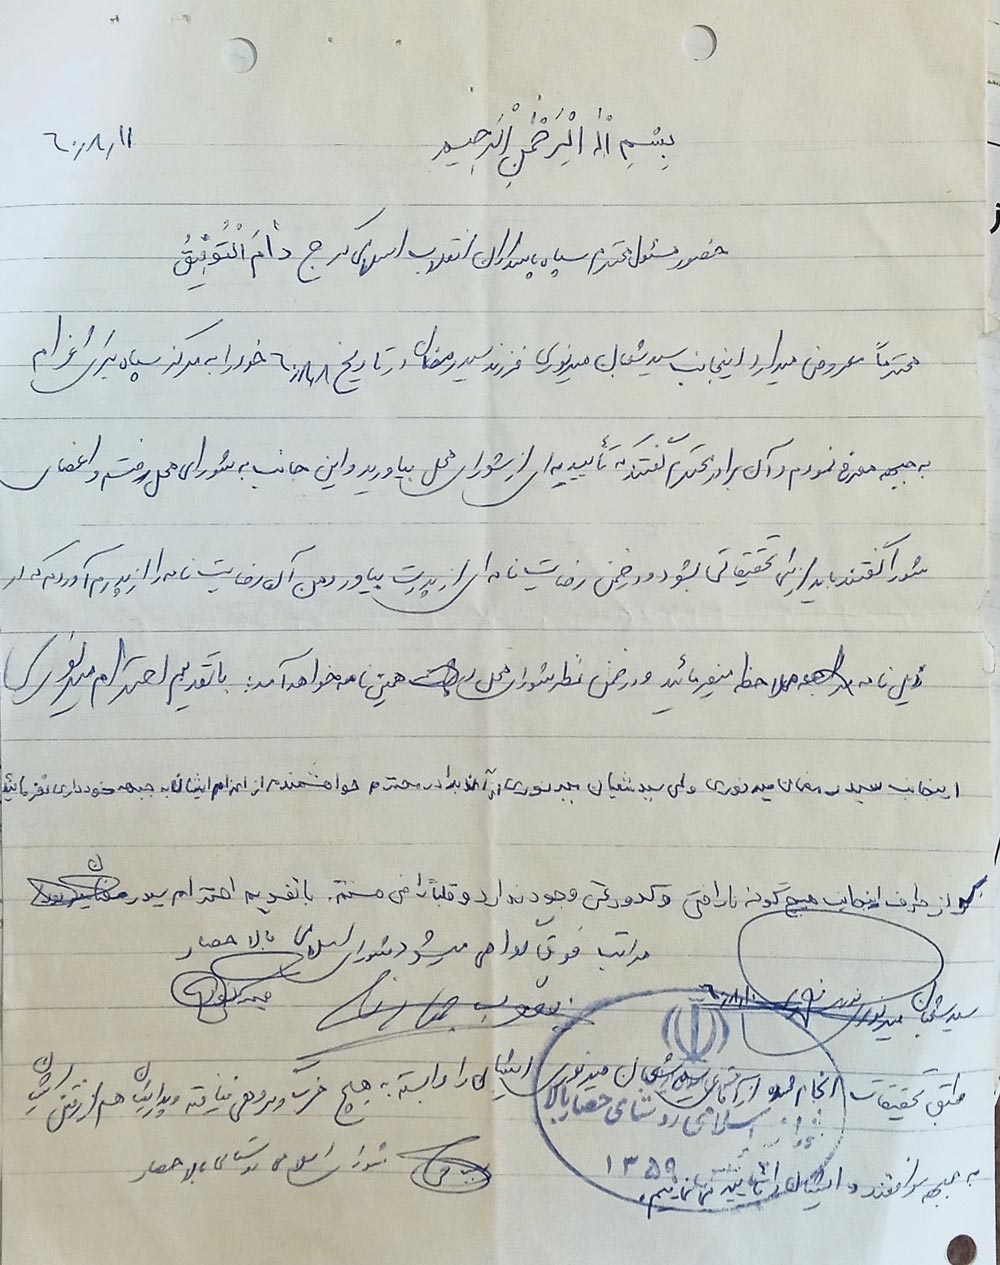 بِسْمِ اللهِ الْرَحْمنِ الْرَحیمِ
۶۰/۸/۱۱
حضور مسئول محترم سپاه پاسداران انقلاب اسلامی کرج دامَ الْتَوفیقُ
محترماً معروض میدارد اینجانب سید شعبان میرنوری فرزند سید رمضان در تاریخ ۶۰/۸/۸ خود را به مرکز سپاه برای اعزام
به جبهه معرفی نمودم و آن برادر محترم گفتند که تأییدیه ای از شورای محل بیاورید و این جانب به شورای محل رفتم و اعضای
شورا گفتند باید از برای تحقیقاتی بشود و در ضمن رضایت نامه ای از پدرت بیاور و من آن رضایت نامه را از پدرم آوردم که در
ذیل نامه ملاحظه میفرمائید و در ضمن نظر شورای محل در همین نامه خواهد آمد: با تقدیم احترام میرنوری
اینجانب سید رمضان میرنوری ولی سید شعبان میرنوری از آن برادر محترم خواهشمندم از اعزام ایشان به جبهه خودداری نفرمائید
و از طرف اینجانب هیچ گونه ناراحتی و کدورتی وجود ندارد و قلباً راضی هستم. با تقدیم احترام سید رمضان
مراتب فوق گواهی میشود شورای اسلامی بالا حصار
سید شعبان میرنوری
یعقوب
طبق تحقیقات انجام شده از آقای سید شعبان میرنوری ایشان وابسته به هیچ حزب و گروهی نیافته و پدر ایشان هم از رفتن ایشان
به جبهه موافقند و ایشان را تأیید مینمائیم.
شورای اسلامی روستای بالا حصار
شورای اسلامی روستای حصار بالا
تأسیس ۱۳۵۹